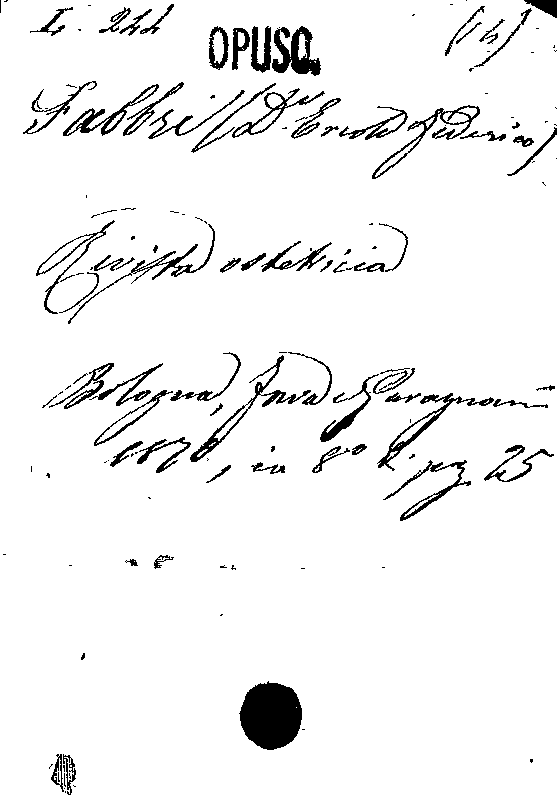 I. 244 OPUSC. (14)
Fabbri (Dr. Ercole Federico)
Rivista ostetricia
Bologna, Fava e Garagnani
1870, in 8º di pag. 25